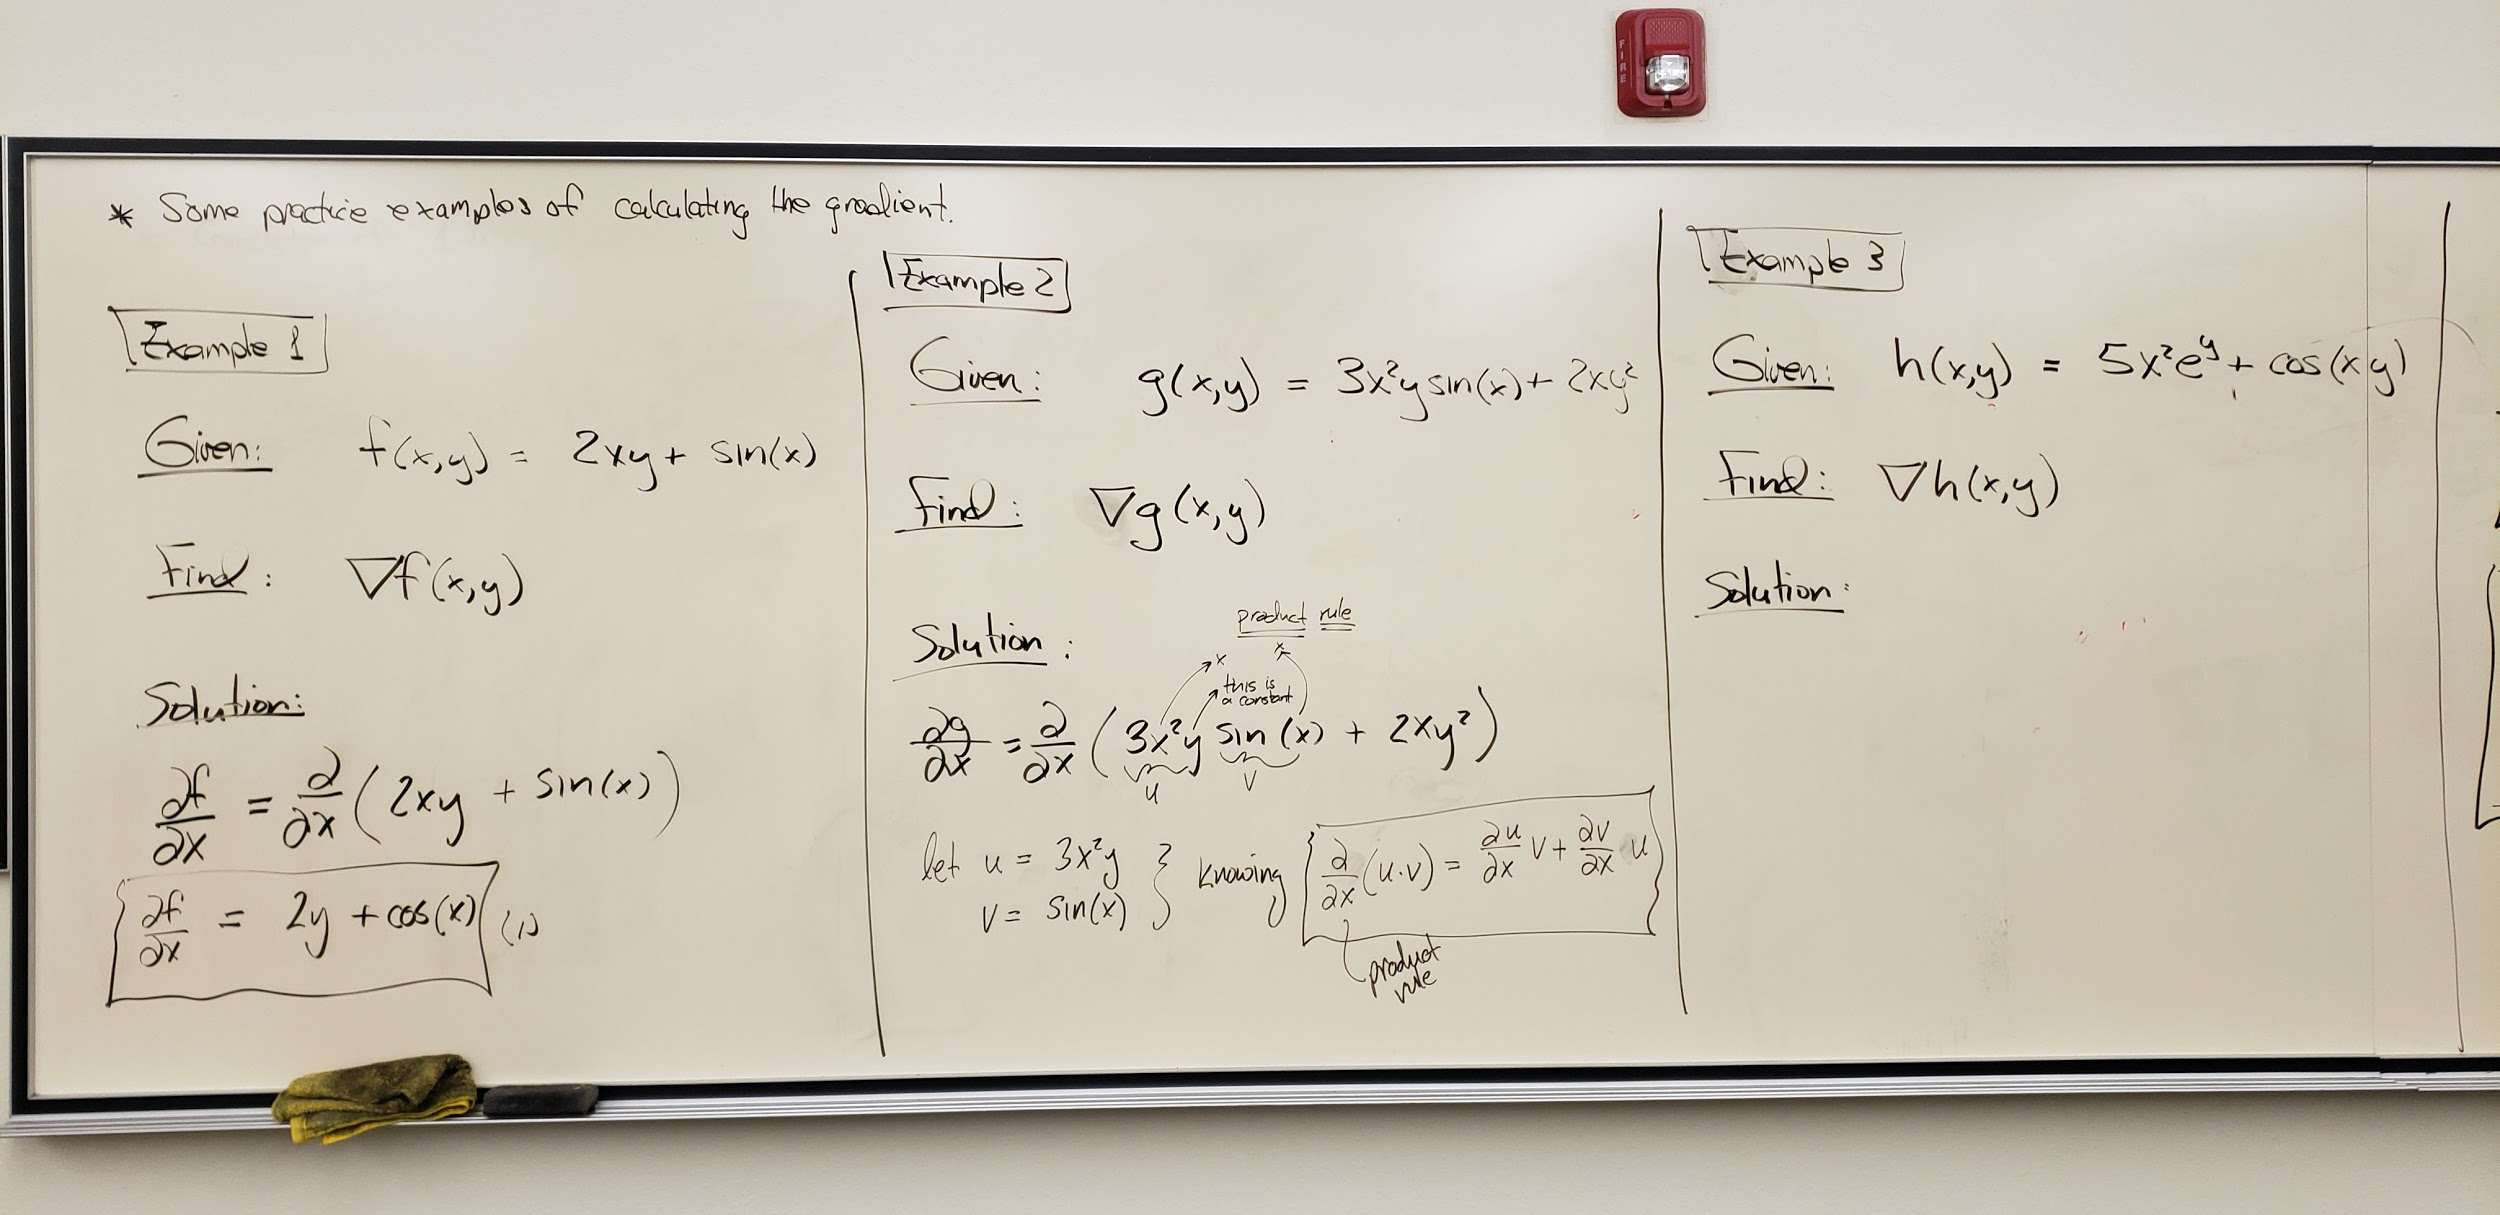 FIRE
* Some practice examples of calculating the gradient.
Example 1
Given: f(x,y) = 2xy + sin(x)
Find: ∇f(x,y)
Solution:
∂f/∂x = ∂/∂x (2xy + sin(x))
∂f/∂x = 2y + cos(x) (1)
Example 2
Given: g(x,y) = 3x²y sin(x) + 2xy²
Find: ∇g(x,y)
product rule
Solution:
x x
this is
a constant
∂g/∂x = ∂/∂x (3x²y sin(x) + 2xy²)
u v
let u = 3x²y } knowing ∂/∂x (u·v) = ∂u/∂x v + ∂v/∂x u
v = sin(x)
product
rule
Example 3
Given: h(x,y) = 5x²e^y + cos(xy)
Find: ∇h(x,y)
Solution: